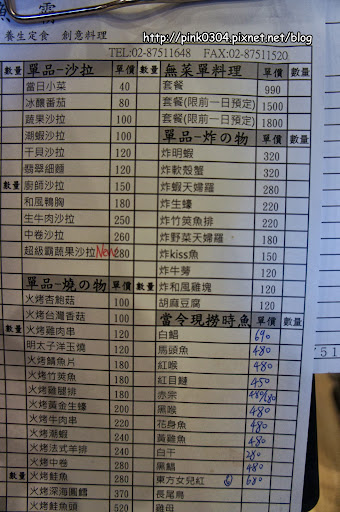 http://pink0304.pixnet.net/blog
養生定食 創意料理
TEL:02-87511648 FAX:02-87511520
數量 單品-沙拉 單價
當日小菜 40
冰釀番茄 80
蔬果沙拉 100
潮蝦沙拉 100
干貝沙拉 120
翡翠細麵 120
數量 廚師沙拉 150
和風鴨胸 180
生牛肉沙拉 250
中卷沙拉 260
超級霸蔬果沙拉 New 280
單品-燒の物 單價
火烤杏鮑菇 100
火烤台灣香菇 100
火烤雞肉串 120
明太子洋玉燒 120
火烤鯖魚片 180
火烤竹筴魚 180
火烤雞腿排 180
火烤黃金生蠔 200
火烤牛肉串 220
火烤潮蝦 240
火烤法式羊排 240
火烤中卷 280
數量 火烤鮭魚 280
火烤深海圓鱈 370
火烤鮭魚頭 520
數量 無菜單料理 單價 數量
套餐 990
套餐(限前一日預定) 1500
套餐(限前一日預定) 1800
單品-炸の物 單價 數量
炸明蝦 320
炸軟殼蟹 320
炸蝦天婦羅 280
炸生蠔 220
炸竹筴魚排 220
炸野菜天婦羅 180
炸kiss魚 150
炸牛蒡 120
數量 炸和風雞塊 120
胡麻豆腐 120
當令現撈時魚 單價 數量
白鯧 690
馬頭魚 480
紅喉 480
紅目鰱 450
赤宗 480/680
黑喉 480
花身魚 480
黃雞魚 480
白干 280
黑鯧 480
東方女兒紅 680
長尾鳥
雞母